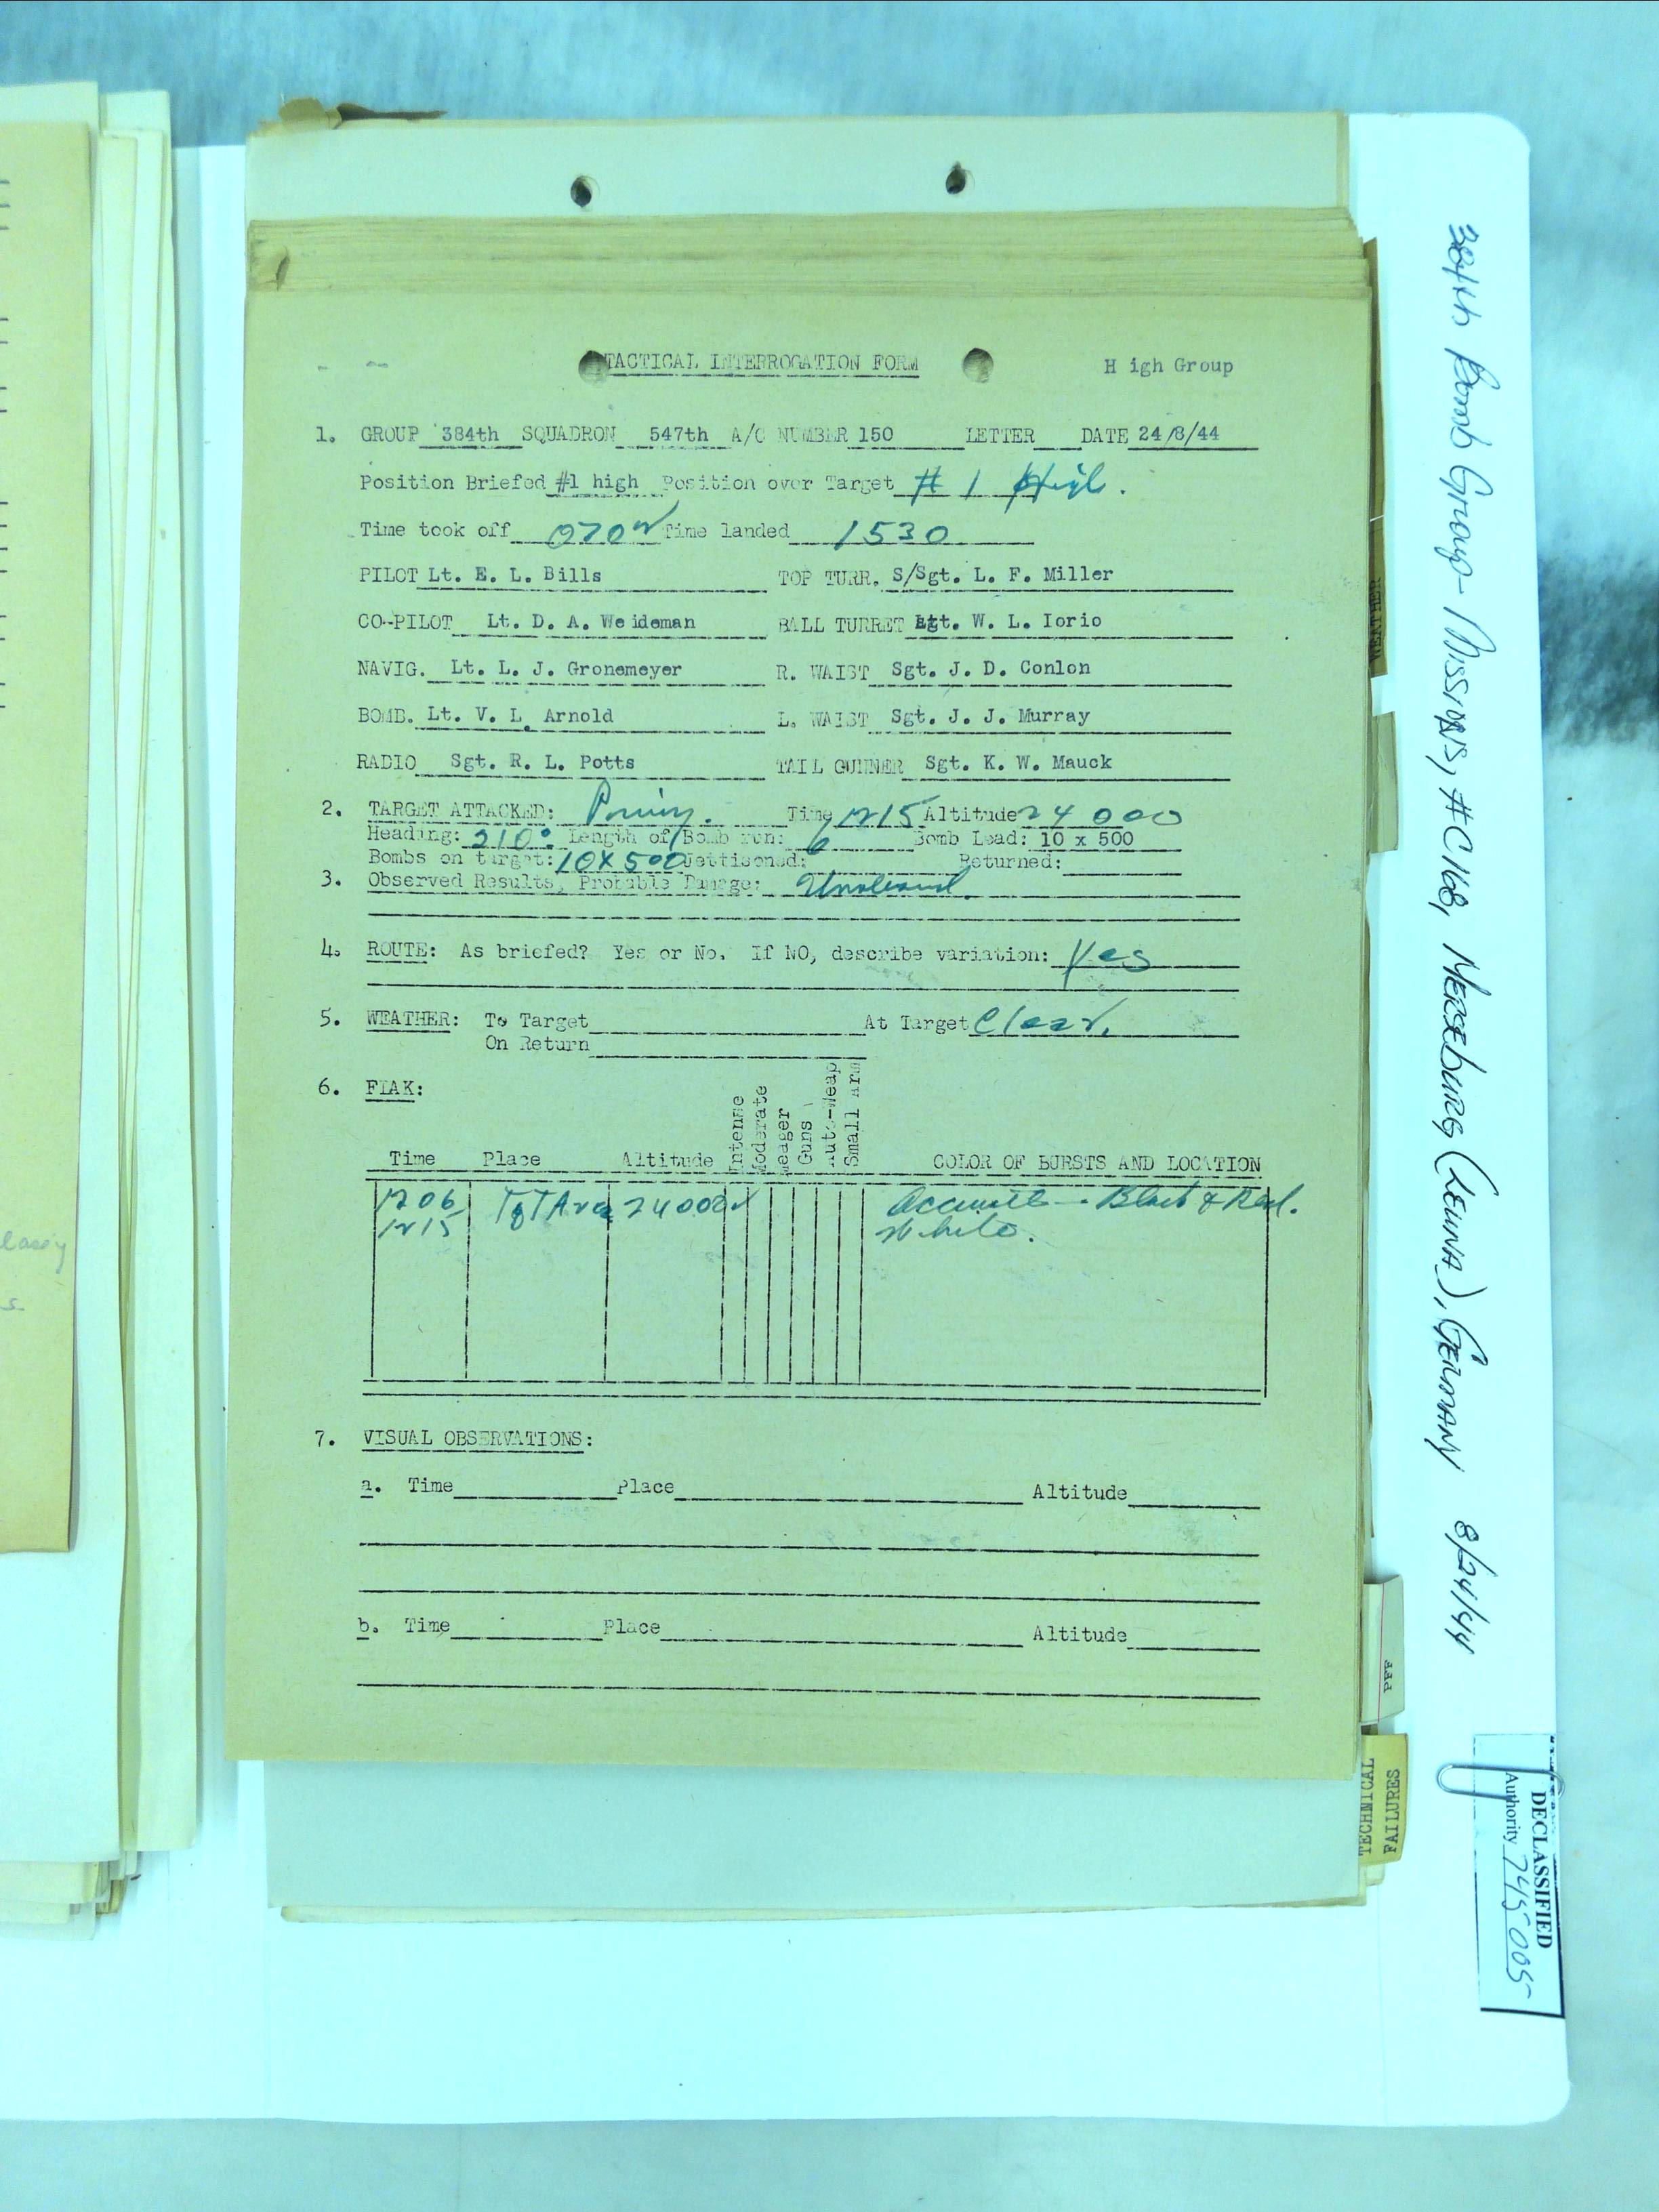 TACTICAL INTERROGATION FORM H igh Group
1. GROUP 384th SQUADRON 547th A/C NUMBER 150 LETTER DATE 24/8/44
Position Briefed #1 high Position over Target # 1 High.
Time took off 0702 Time landed 1530
PILOT Lt. E. L. Bills TOP TURR. S/Sgt. L. F. Miller
CO-PILOT Lt. D. A. Weideman BALL TURRET Sgt. W. L. Iorio
NAVIG. Lt. L. J. Gronemeyer R. WAIST Sgt. J. D. Conlon
BOMB. Lt. V. L. Arnold L. WAIST Sgt. J. J. Murray
RADIO Sgt. R. L. Potts TAIL GUNNER Sgt. K. W. Mauck
2. TARGET ATTACKED: Time 1215 Altitude 24 000
Heading: 210° Length of Bomb run: 6 Bomb Lead: 10 x 500
Bombs on target: 10 X 500 Jettisoned: Returned:
3. Observed Results, Probable Damage: Unobserved.
4. ROUTE: As briefed? Yes or No. If NO, describe variation: Yes
5. WEATHER: To Target At Target Clear.
On Return
6. FLAK:
Time Place Altitude Intense Moderate Meager Guns Auto-Weap Small Arm COLOR OF BURSTS AND LOCATION
1206 TgT Area 24000 ✓ Accurate - Black & Red.
1215 White.
7. VISUAL OBSERVATIONS:
a. Time Place Altitude
b. Time Place Altitude
WEATHER
PFF
TECHNICAL
FAILURES
384th Bomb Group - Missions, #C168, Merseburg (Leuna), Germany 8/24/44
DECLASSIFIED
Authority 745005
s.